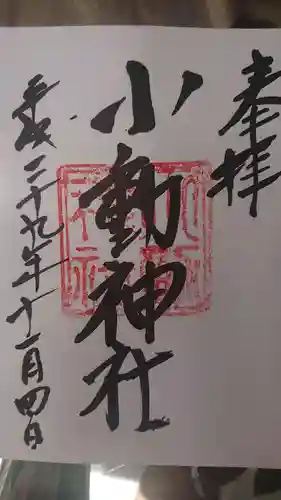 奉拝
小動神社
平成二十九年十一月四日